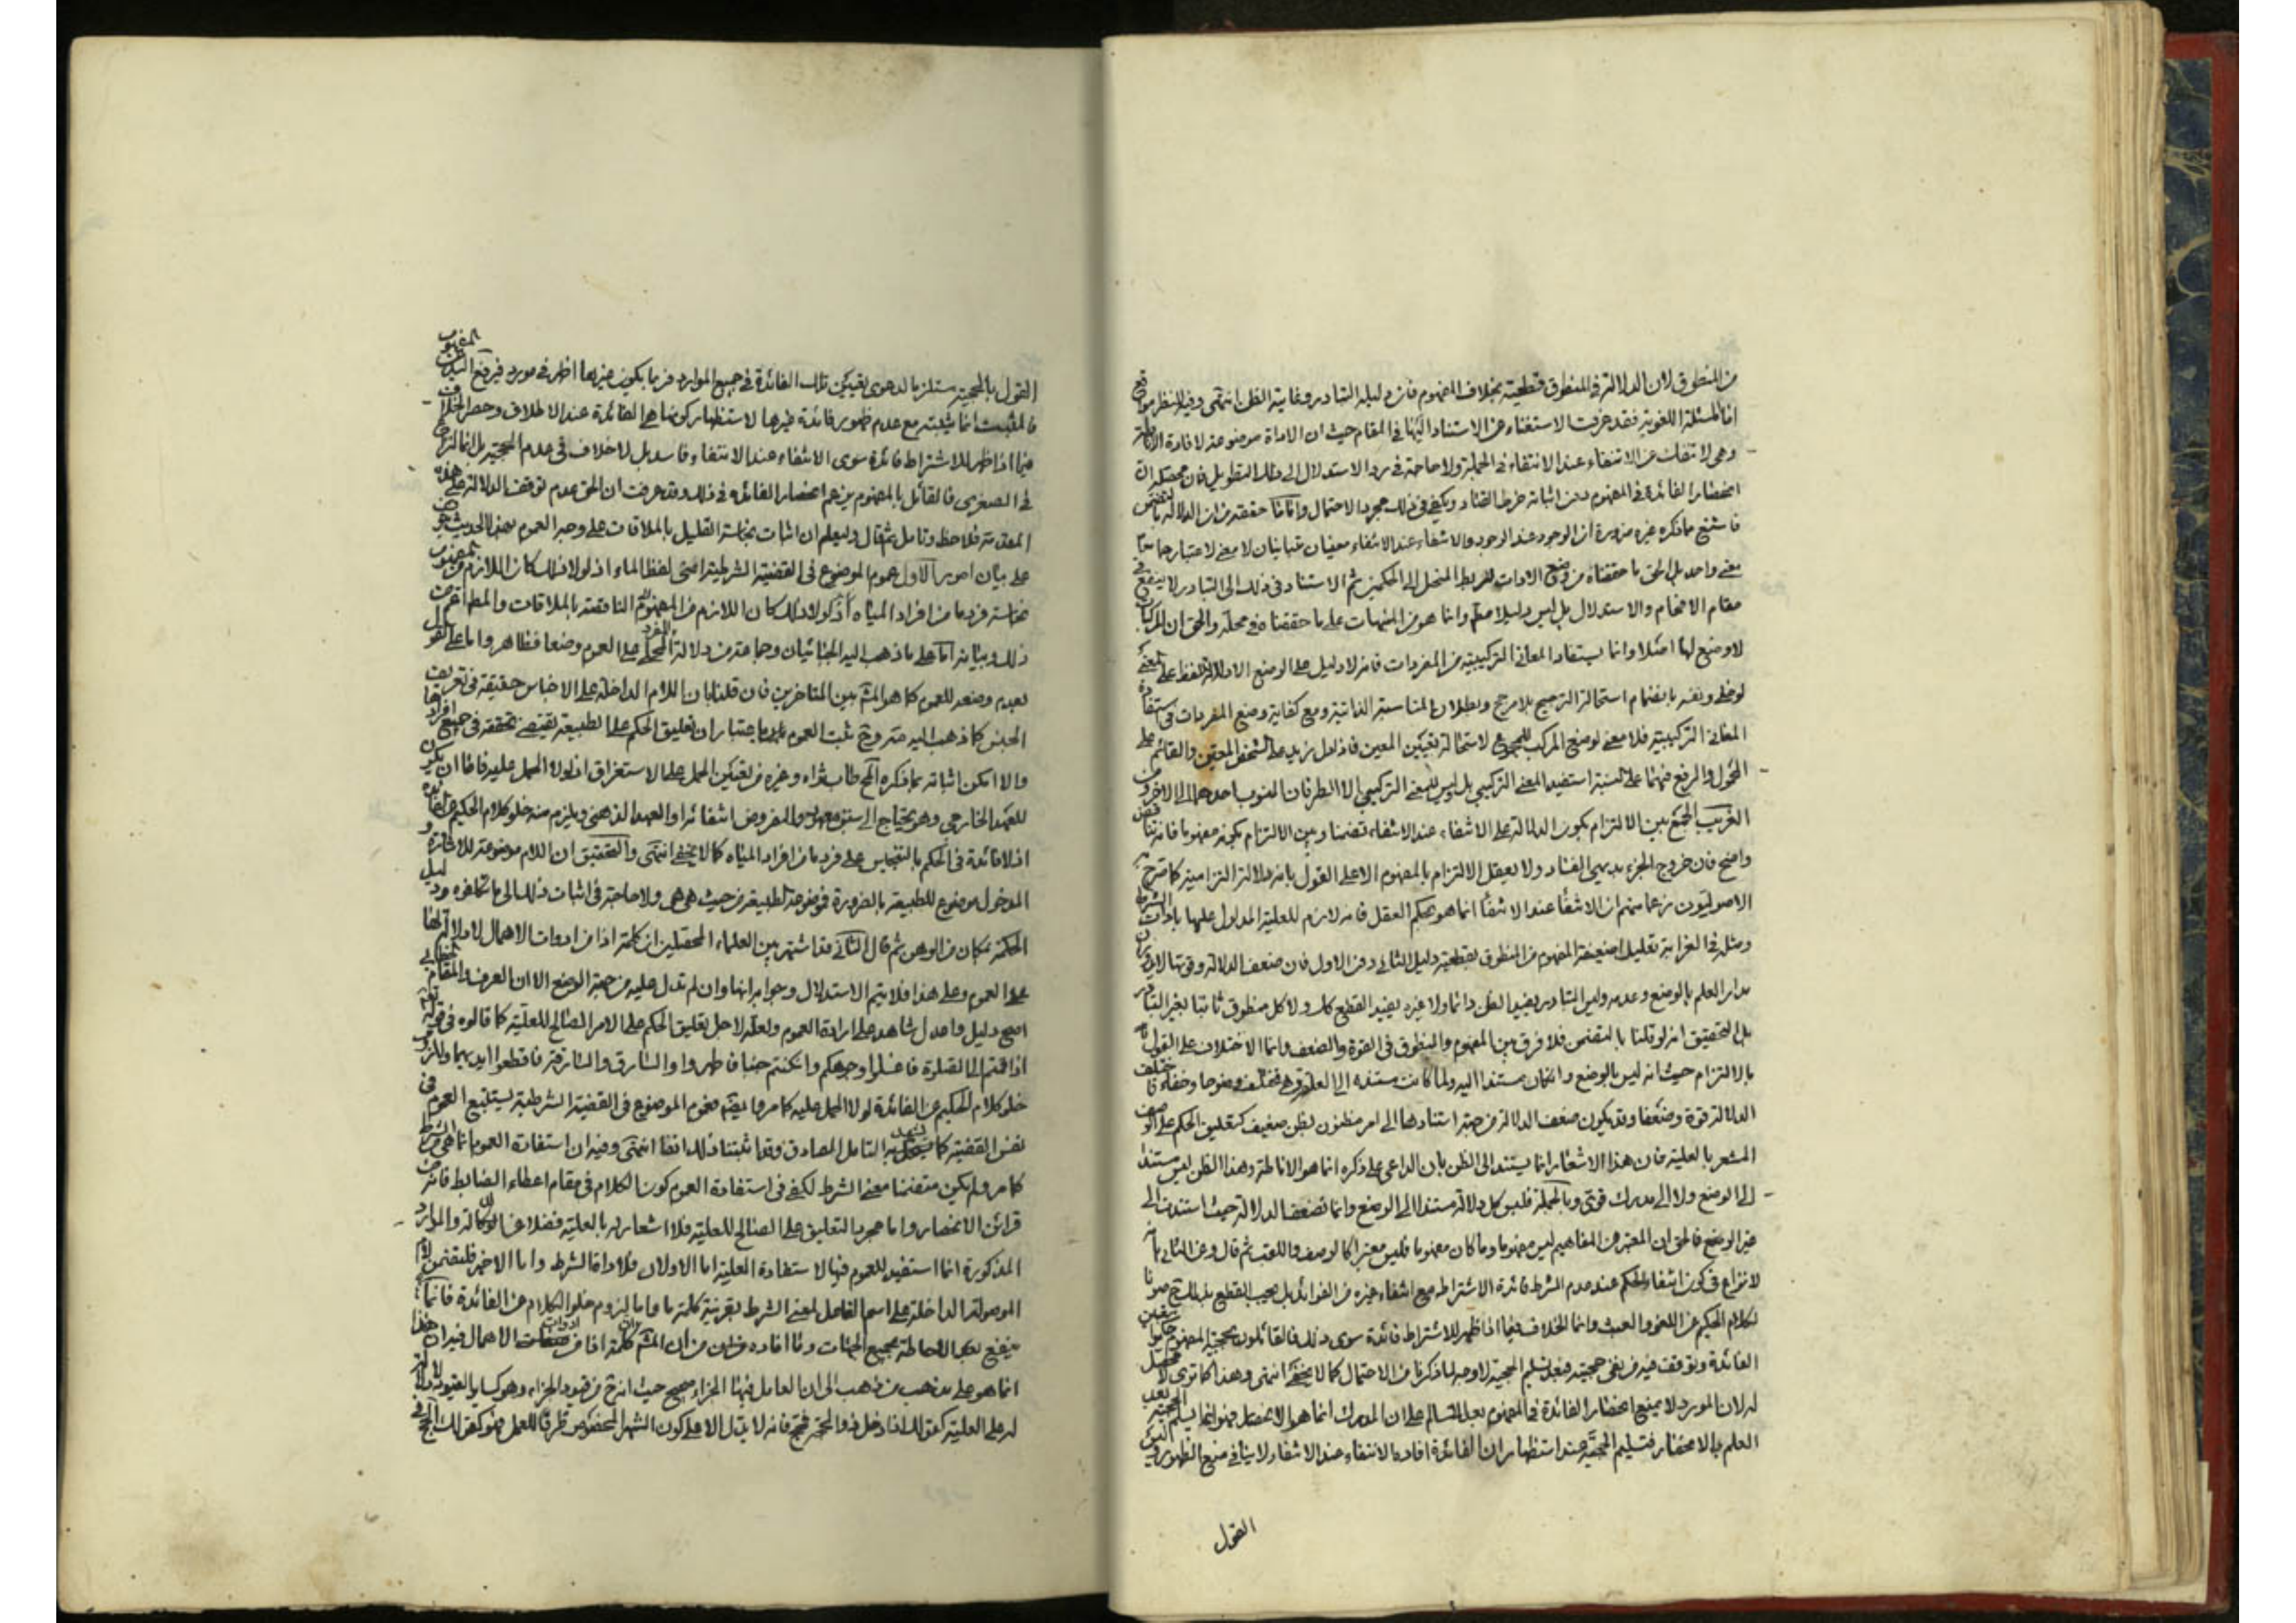 من المنطوق لان الدلالة في المنطوق قطعية بخلاف المفهوم فان دليله التبادر وغاية الظن انتهى وفيه للنظر مواقع
اما المسئلة اللغوية فقد عرفت الاستغناء عن الاستناد اليها في المقام حيث ان الاداة موضوعة لافادة الاناطة
وهي لا تنفك عن الانتفاء عند الانتفاء في الجملة ولا حاجة في رد الاستدلال الى ذلك التطويل فان محصله ان
انحصار الفائدة في المفهوم دون اثباته خرط القتاد ويكفي في ذلك مجرد الاحتمال واما ما حققته من ان الدلالة بالتضمن
فاشنع ما ذكره غيره ضرورة ان الوجود عند الوجود والانتفاء عند الانتفاء معنيان متباينان لا معنى لاعتبارهما معا
معنى واحد بل الحق ما حققناه من وضع الادات للربط المنحل الى الحكمين ثم الاستناد في ذلك الى التبادر لا ينفع في
مقام الافحام والاستدلال بل ليس دليلا معلم وانما هو من المنبهات على ما حققناه في محله والحق ان المركبات
لا وضع لها اصلا وانما يستفاد المعاني التركيبية من المفردات فانه لا دليل على الوضع الا دلالة اللفظ على المعنى
لو خلى ونفسه بانضمام استحالة الترجيح بلا مرجح وبطلان المناسبة الذاتية ومع كفاية وضع المفردات في استفادة
المعاني التركيبية فلا معنى لوضع المركب للمجموع لاستحالة تعيين المعين فاذا دل زيد على الشخص المعين والقائم على
المحمول والرفع فيهما على النسبة استفيد المعنى التركيبي بل ليس للمعنى التركيبي الا الطرفان المنسوب احدهما الى الاخر ومن
الغريب الجمع بين الالتزام بكون الدلالة على الانتفاء عند الانتفاء تضمنا وبين الالتزام بكونه مفهوما فانه تناقض
واضح فان خروج الجزء بديهي الفساد ولا يعقل الالتزام بالمفهوم الا على القول بانه دلالة التزامية كما صرح به
الاصوليون زعما منهم ان الانتفاء عند الانتفاء انما هو بحكم العقل فانه لازم للعلية المدلول عليها بادات الشرط
ومثله في الغرابة تعليل اضعفية المفهوم من المنطوق بقطعية دليل الثاني دون الاول فان ضعف الدلالة وقوتها لا يدوران
مدار العلم بالوضع وعدمه وليس التبادر يفيد الظن دائما ولا غيره يفيد القطع كك ولا كل منطوق ثابتا بغير التبادر
بل التحقيق انه لو قلنا بالتضمن فلا فرق بين المفهوم والمنطوق في القوة والضعف وانما الاختلاف على القول
بالالتزام حيث انه ليس بالوضع وان كان مستندا اليه ولما كانت مستنده الى العلة وهي تختلف وضوحا وخفاء فاختلف
الدلالة قوة وضعفا وقد يكون ضعف الدلالة من جهة استنادها الى امر مظنون بظن ضعيف كتعليق الحكم على الوصف
المشعر بالعلية فان هذا الاشعار انما يستند الى الظن بان الداعي على ذكره انما هو الاناطة وهذا الظن ليس مستندا
الى الوضع ولا الى مدرك قوي وبالجملة فليس كل دلالة مستندا الى الوضع وانما تضعف الدلالة حيث استندت الى
غير الوضع فالحق ان المعتبر من المفاهيم ليس مفهوما وما كان مفهوما فليس معتبرا كالوصف واللقب ثم قال وعن الثاني بانه
لا نزاع في كون انتفاء الحكم عند عدم الشرط فائدة الاشتراط مع انتفاء غيره من الفوائد بل يجب القطع بذلك ح صونا
لكلام الحكيم عن اللغو والعبث وانما الخلاف فيما اذا ظهر للاشتراط فائدة سوى ذلك فالقائلون بحجية المفهوم حكموا بتعين
الفائدة وتوقف فيه من نفى حجيته فبعد تسليم الحجية لا وجه لما ذكرنا من الاحتمال كما لا يخفى انتهى وهذا كما ترى لا محصل
له لان المورد لا يمنع انحصار الفائدة في المفهوم بعد التسالم على ان المدرك انما هو الانحصار فهو انما يسلم الحجية بعد
العلم بالانحصار فتسليم الحجية عند استظهار ان الفائدة افاده الانتفاء عند الانتفاء لا ينافي منع الظهور وليس
القول
القول بالحجية مستلزما لدعوى تعين تلك الفائدة في جميع الموارد فربما يكون غيرها اظهر في مورد فيرفع اليد عن المفهوم
فالمثبت انما يثبته مع عدم ظهور فائدة غيرها لاستظهار كونها هي الفائدة عند الاطلاق وحصر الخلاف
فيما اذا ظهر للاشتراط فائدة سوى الانتفاء عند الانتفاء فاسد بل لا خلاف في عدم الحجية بل انما النزاع
في الصغرى فالقائل بالمفهوم يزعم انحصار الفائده في ذلك وقد عرفت ان الحق عدم توقف الدلالة على هذه
المقدمة فلاحظ وتامل ثم قال وليعلم ان اثبات نجاسة القليل بالملاقات على وجه العموم بهذا الحديث موقوف
على بيان امور الاول عموم الموضوع في القضية الشرطية اعنى لفظ الماء اذ لولا ذلك كان اللازم من المفهوم
نجاسة فرد ما من افراد المياه اذ لولا ذلك كان اللازم من المفهوم النافقته بالملاقات والمط اعم من
ذلك وبيانه اما على ما ذهب اليه الجبائيان وجماعة من دلالة المفرد المحلى على العموم وضعا فظاهر واما على القول
بعدم وضعه للعموم كما هو المش بين المتاخرين فان قلنا بان اللام الداخلة على الاجناس حقيقة في تعريف
الجنس كما ذهب اليه وح ثبت العموم باعتبار ان تعليق الحكم على الطبيعة يقتضي تحققه في جميع افرادها
والا امكن اثباته بما ذكره المح طاب ثراه وغيره من تعين الحمل على الاستغراق اذ لولا الحمل عليه فاما ان يكون
للعهد الخارجي وهو يحتاج الى سبق معهود والمفروض انتفائه او العهد الذهني ويلزم منه خلو كلام الحكيم عن الفائدة
اذ لا فائدة في الحكم بالتنجيس على فرد ما من افراد المياه كما لا يخفى انتهى والتحقيق ان اللام موضوعة للاشارة و
المدخول موضوع للطبيعة بالضرورة فموضوعه الطبيعة من حيث هي هي ولا حاجة في اثبات ذلك الى ما تكلفوه ودليل
الحكمة بمكان من الوهن ثم قال الثاني قد اشتهر بين العلماء المحصلين ان كلمة اذا من ادوات الاهمال لا دلالة لها
على العموم وعلى هذا فلا يتم الاستدلال وجوابه انها وان لم تدل عليه من جهة الوضع الا ان العرف والمقام الخطابي
اصح دليل واعدل شاهد على ارادة العموم ولعله لاجل تعليق الحكم على الامر الصالح للعلية كما قالوه في قوله تعالى
اذا قمتم الى الصلوة فاغسلوا وجوهكم وان كنتم جنبا فاطهروا والسارق والسارقة فاقطعوا ايديهما ولزوم
خلو كلام الحكيم عن الفائدة لولا الحمل عليه كما مر وايضم عموم الموضوع في القضية الشرطية يستتبع العموم في
نفس القضية كما يشهد به التامل الصادق وقد اثبتنا ذلك انفا انتهى وفيه ان استفادة العموم انما هي من الشرط
كما مر ولم يكن متضمنا معنى الشرط لكفى في استفادة العموم كون الكلام في مقام اعطاء الضابط فانه من
قرائن الانحصار واما مجرد التعليق على الصالح للعلية فلا اشعار له بالعلية فضلا عن الدلالة والموارد
المذكورة انما استفيد العموم فيها لاستفادة العلية اما الاولان فلاداة الشرط واما الاخير فلتضمن اللام
الموصولة الداخلة على اسم الفاعل لمعنى الشرط بقرينة كلمة فا واما لزوم خلو الكلام عن الفائدة فانما
يندفع بعد الاحاطة بجميع الجهات وما افاده من ان المش ان كلمة اذا من ادوات الاهمال فيه ان هذا
انما هو على مذهب من ذهب الى ان العامل فيها الجزاء صحيح حيث انه ح من قيود الجزاء وهو كساير القيود لا دلالة
له على العلية كقولك اذا دخل ذو الحجة فحج فانه لا يدل الا على كون الشهر المخصوص ظرفا للعمل فهو كقولك الحج في